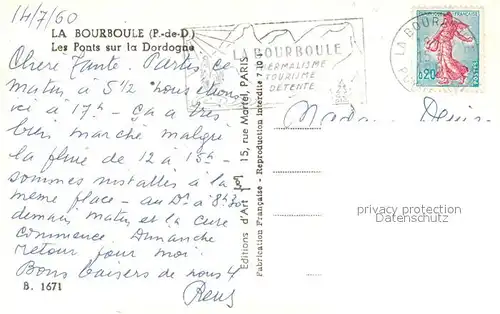 14/7/60
LA BOURBOULE (P.-de-D.)
Les Ponts sur la Dordogne
Chère Tante. Partis ce
matin à 5 1/2 nous étions
ici à 17h - ça a très
bien marché malgré
la pluie de 12 à 15h -
sommes installés à la
même place - au Dr à 8h30
demain matin et la cure
commence. Dimanche
retour pour moi.
Bons baisers de nous 4
B. 1671
Editions d'Art 15, rue Martel, PARIS
Fabrication Française - Reproduction interdite
LA BOURBOULE
THERMALISME
TOURISME
DETENTE
LA BOURB
0,20
Madame Denis
privacy protection
PostalPastcards